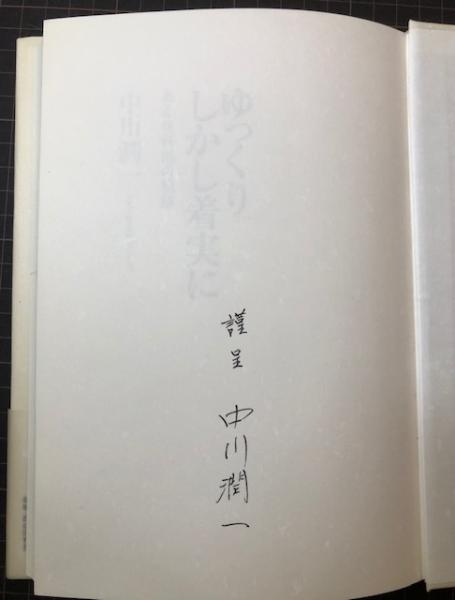 ゆっくり
しかし着実に
中川潤一
謹呈 中川潤一